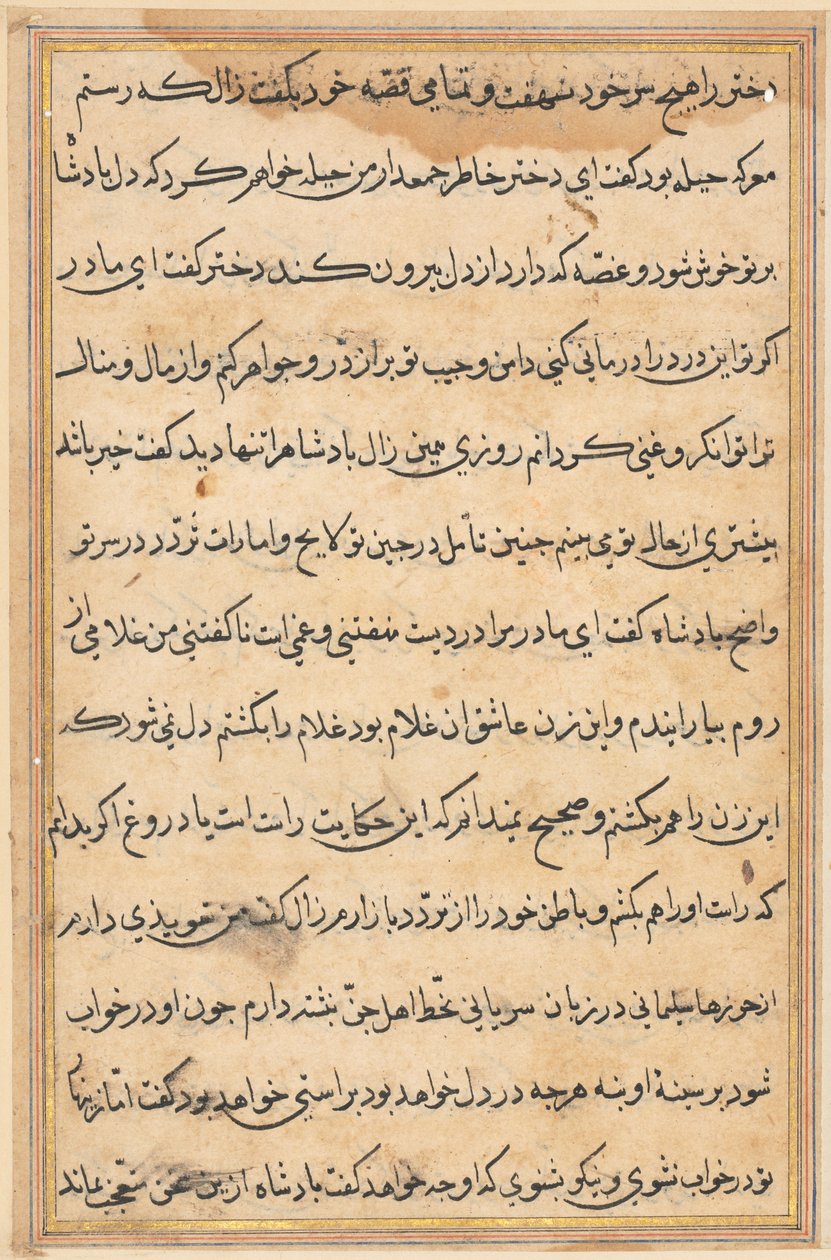 دختر را هیچ سر خود ننهفت و تمامی قصّه خود بکفت زال که رستم
معرکه حیله بود کفت ای دختر خاطر جمعدار من حیله خواهم کرد که دل بادشاه
بر تو خوش شود و غصّه که دارد از دل بیرون کند دختر کفت ای مادر
اکر تو این درد را درمانی کنی دامن و جیب تو بر از درّ و جواهر کنم و از مال و منال
ترا توانکر و غنی کردانم روزی همین زال بادشاه را تنها دید کفت خیر باشد
بیشتری از حال تو می بینم جنین تأمل در جبین تو لایح و امارات تردّد در سر تو
واضح بادشاه کفت ای مادر مرا دردیست نهفتنی و غمی است ناکفتنی من غلامی از
روم بیارایندم و این زن عاشق ان غلام بود غلام را بکشتم دل نمی شود که
این زن را هم بکشم و صحیح نمیدانم که این حکایت راست است یا دروغ اکر بدانم
که راست او را هم بکشم و باطن خود را از تردّد باز ارم زال کفت من تعویذی دارم
از حرزهاء سلیمانی در زبان سریانی بخّط اهل جنّ نبشته دارم جون او در خواب
شود بر سینهٔ او بنه هرجه در دل خواهد بود براستی خواهد بود کفت امّا زینهار
تو در خواب نشوی و نیکو بشنوی که او جه خواهد کفت بادشاه ازین سخن متعّجب بماند